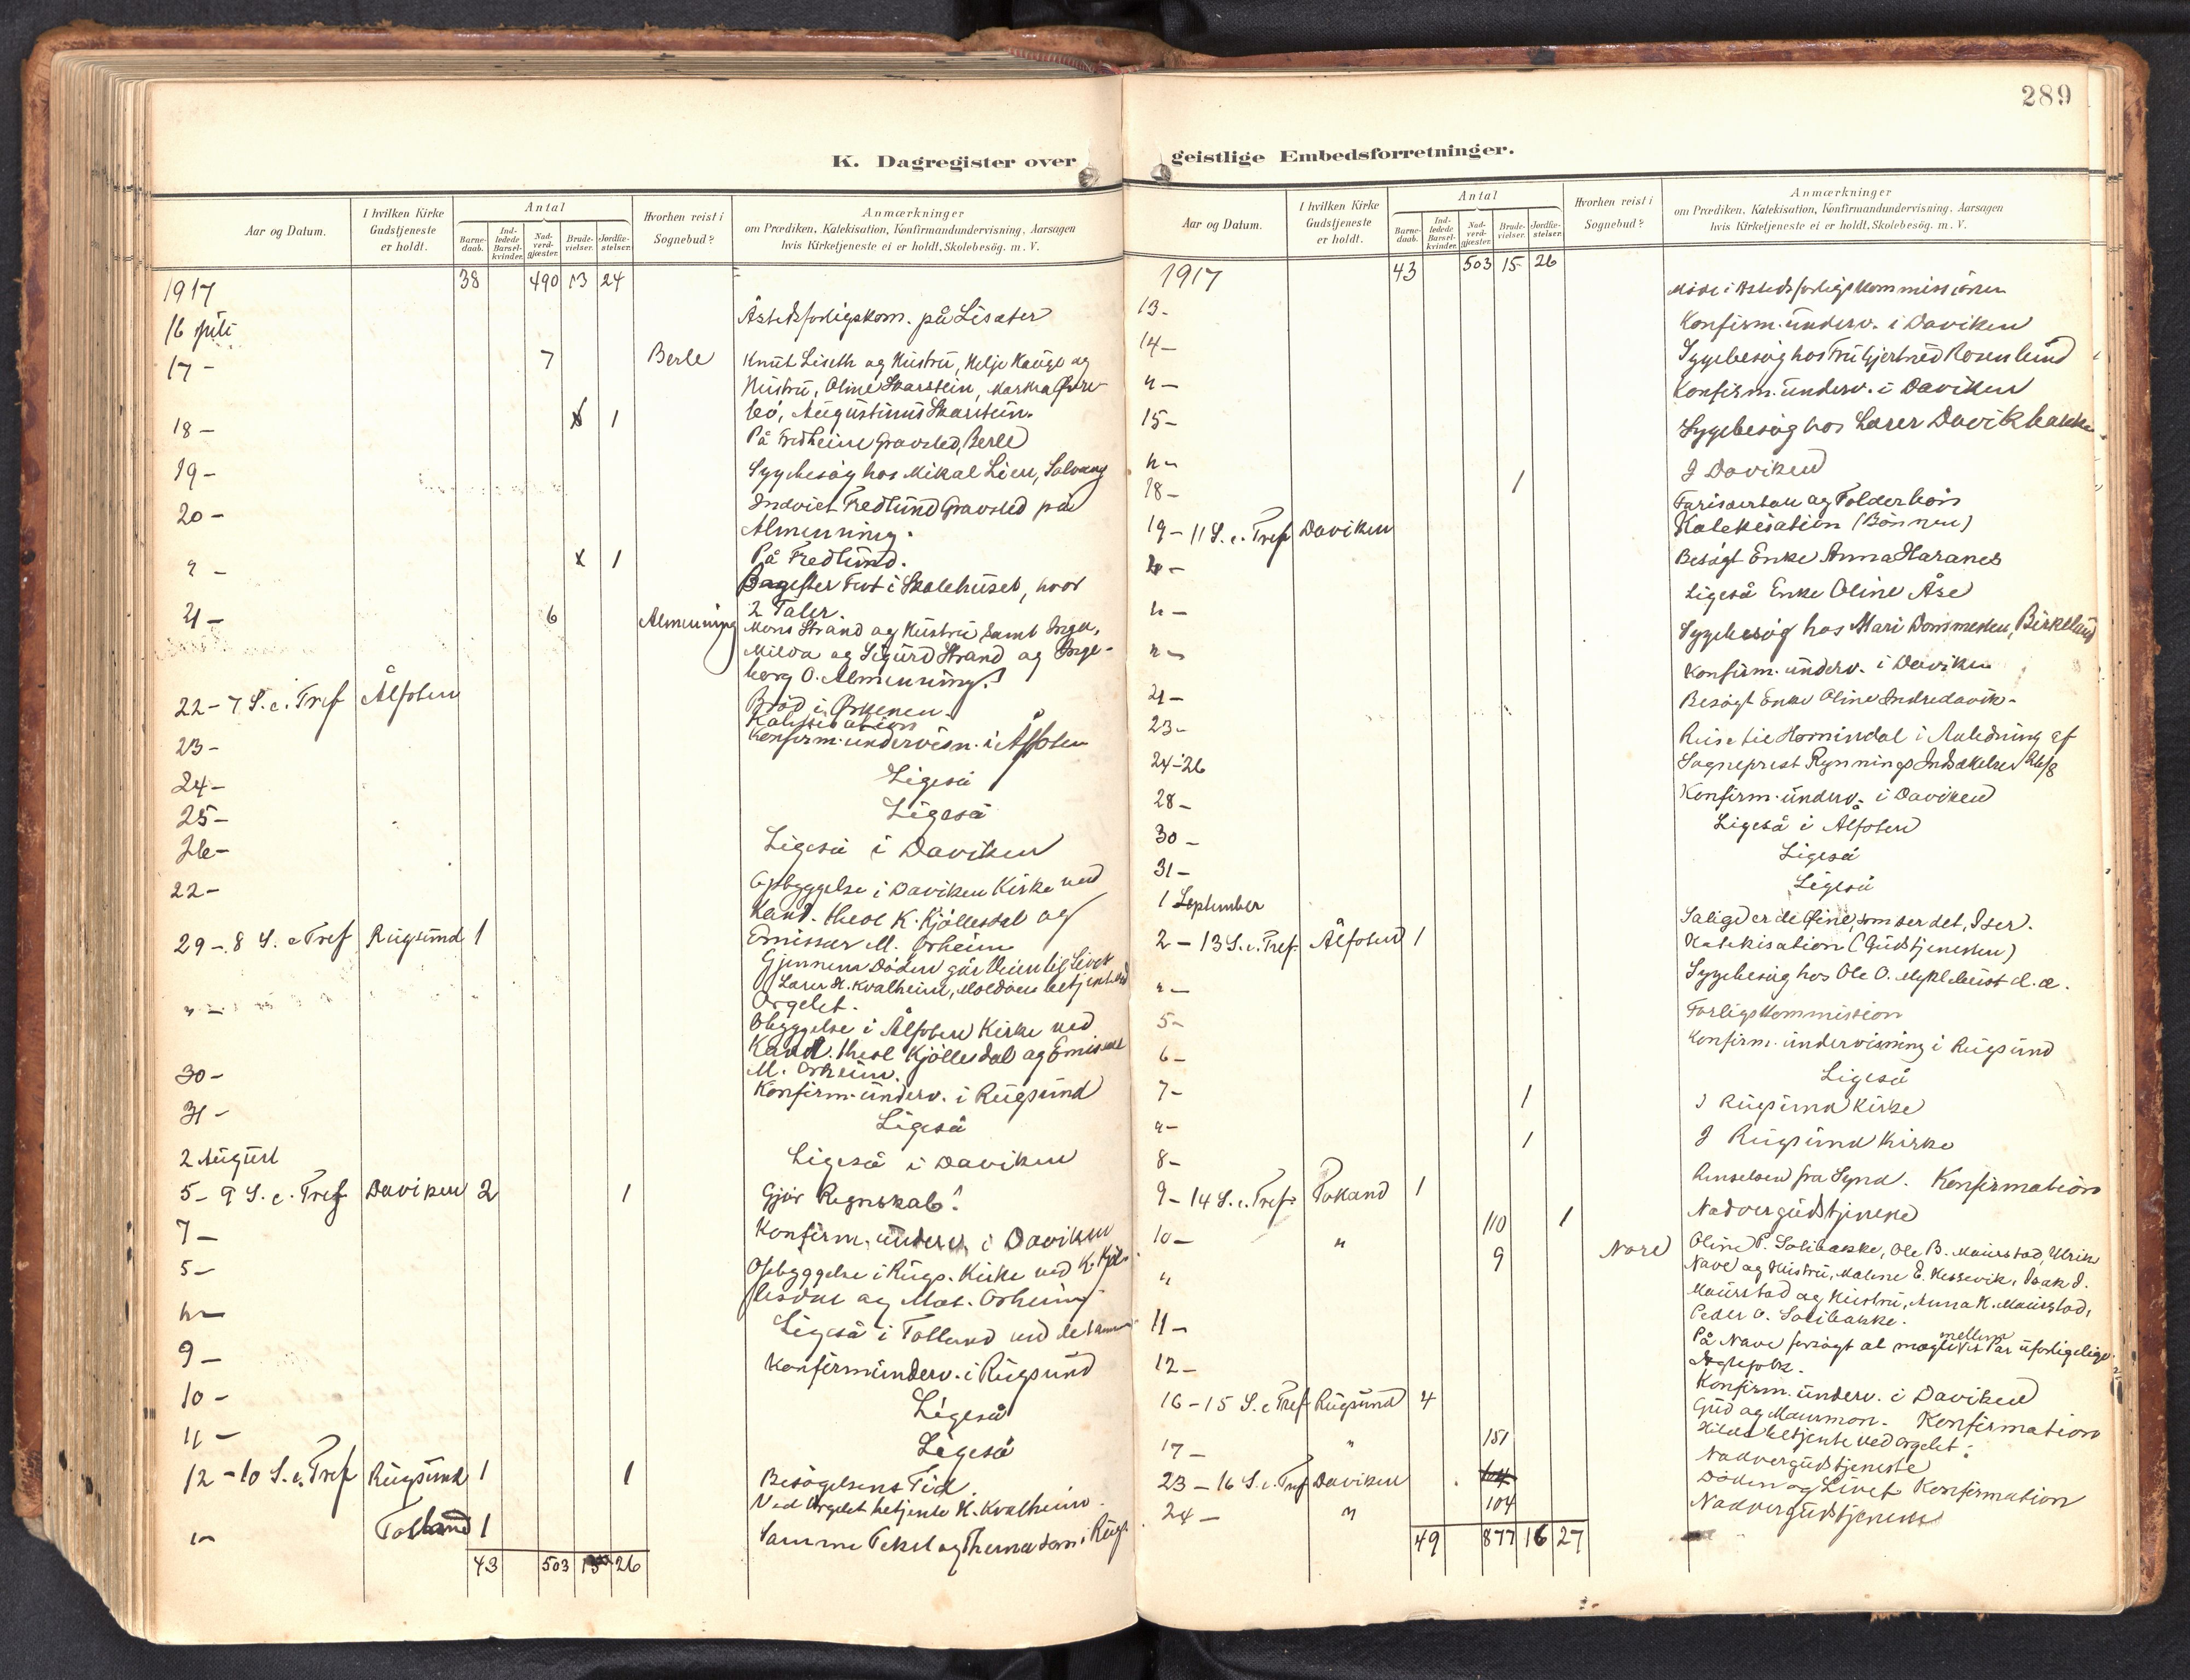 289
K. Dagregister over
Aar og Datum.
I hvilken Kirke
Gudstjeneste
er holdt.
Antal
Barne-
daab.
Ind-
ledede
Barsel-
kvinder.
Nad-
verd-
gjæster.
Brude-
vielser.
Jordfæ-
stelser.
Hvorhen reist i
Sognebud?
Anmærkninger
om Prædiken, Katekisation, Konfirmandundervisning, Aarsagen
hvis Kirketjeneste ei er holdt, Skolebesøg. m. V.
1917 38 490 13 24
16 Juli Åstedsforligskom. på Lisæter
17 - 7 Berle Knut Liseth og Hustru, Helje Hauge og
Hustru, Oline Skarstein, Martha Øvre-
bö, Augustinus Skarstein.
18 - 1 På Fredheim Gravsted, Berle
19 - Sygebesög hos Mikal Lien,
20 - Indviet Fredlund Gravsted på
Almenning.
" - 1 På Fredlund.
i Skolehuset, hvor
2 Taler.
21 - 6 Almenning Mons Strand og Hustru samt Inga,
Milda og Sigurd Strand og Inge-
borg O. Almenning.
22 - 7 S. e. Tref Ålfoten Bröd i Örkenen.
Katekisation
23 - Konfirm. undervisn. i Ålfoten
24 - Ligeså
25 - Ligeså
26 - Ligeså i Daviken
22 - Opbyggelse i Daviken Kirke ved
Kand. theol K. Kjöllesdal og
Emissær M. Orheim
29 - 8 S. e Tref Rugsund 1 Gjennem Döden går Veien til Livet
Lærer H. Kvalheim, Moldöen betjente ved
Orgelet.
" - Obyggelse i Ålfoten Kirke ved
Kand. theol Kjöllesdal og Emissær
M. Orheim.
30 - Konfirm. underv. i Rugsund
31 - Ligeså
2 August Ligeså i Daviken
5 - 9 S. e. Tref Daviken 2 1 Gjör Regnskab!
7 - Konfirm. underv. i Daviken
5 - Opbyggelse i Rugs. Kirke ved K. Kjöl-
lesdal og Mat. Orheim
" - Ligeså i Totland ved de samme
9 - Konfirmunderv. i Rugsund
10 - Ligeså
11 - Ligeså
12 - 10 S. e. Tref Rugsund 1 1 Besögelsens Tid.
Ved Orgelet betjente H. Kvalheim.
" - Totland 1 Samme Tekst og Thema som i Rugs.
43 503 15 26
geistlige Embedsforretninger.
Aar og Datum.
I hvilken Kirke
Gudstjeneste
er holdt.
Antal
Barne-
daab.
Ind-
ledede
Barsel-
kvinder.
Nad-
verd-
gjæster.
Brude-
vielser.
Jordfæ-
stelser.
Hvorhen reist i
Sognebud?
Anmærkninger
om Prædiken, Katekisation, Konfirmandundervisning, Aarsagen
hvis Kirketjeneste ei er holdt, Skolebesög. m. V.
1917 43 503 15 26
13 - Möde i Åstedsforligskommissionen
14 - Konfirm. underv. i Daviken
" - Sygebesög hos Fru Gjertrud Rosenlund
15 - Konfirm. underv. i Daviken
" - Sygebesög hos Lærer Davikbakke
18 - 1 I Daviken
19 - 11 S. e. Tref Daviken Farisæeren og Tolderen
Katekisation (Bönnen)
20 - Besögt Enke Anna Haranes
" - Ligeså Enke Oline Åse
" - Sygebesög hos Mari Dommesen, Birkeland
21 - Konfirm. underv. i Daviken
23 - Besögt Enke Oline Indredavik.
24-26 Reise til Hornindal i Anledning af
Sogneprest Rynnings Indsættelse 26/8
28 - Konfirm. underv. i Daviken
30 - Ligeså i Ålfoten
31 - Ligeså
1 September Ligeså
2 - 13 S. e. Tref. Ålfoten 1 Salige er de Öine, som ser det, I ser.
Katekisation (Gudstjenesten)
" - Sygebesög hos Ole O. Myklebust d. æ.
5 - Forligskommission
6 - Konfirm. undervisning i Rugsund
7 - Ligeså
" - 1 I Rugsund Kirke
8 - 1 I Rugsund Kirke
9 - 14 S. e. Tref. Totland 1 Renselsen fra Synd. Konfirmation
10 - " 110 1 Nadvergudstjeneste
" 9 Nave Oline P. Solibakke, Ole B. Maurstad, Ulrik
Nave og Hustru, Malene E. Kessevik, Isak I.
Maurstad og Hustru, Anna K. Maurstad,
Peder O. Solibakke.
11 - På Nave forsögt at mægle mellem et Par uforligelige
Ægtefolk.
12 - Konfirm. underv. i Daviken
16 - 15 S. e Tref Rugsund 4 Gud og Mammon. Konfirmation
Hilda betjente ved orgelet.
17 - " 151 Nadvergudstjeneste
23 - 16 S. e. Tref Daviken Döden og Livet Konfirmation
24 - " 104 Nadvergudstjeneste
49 877 16 27